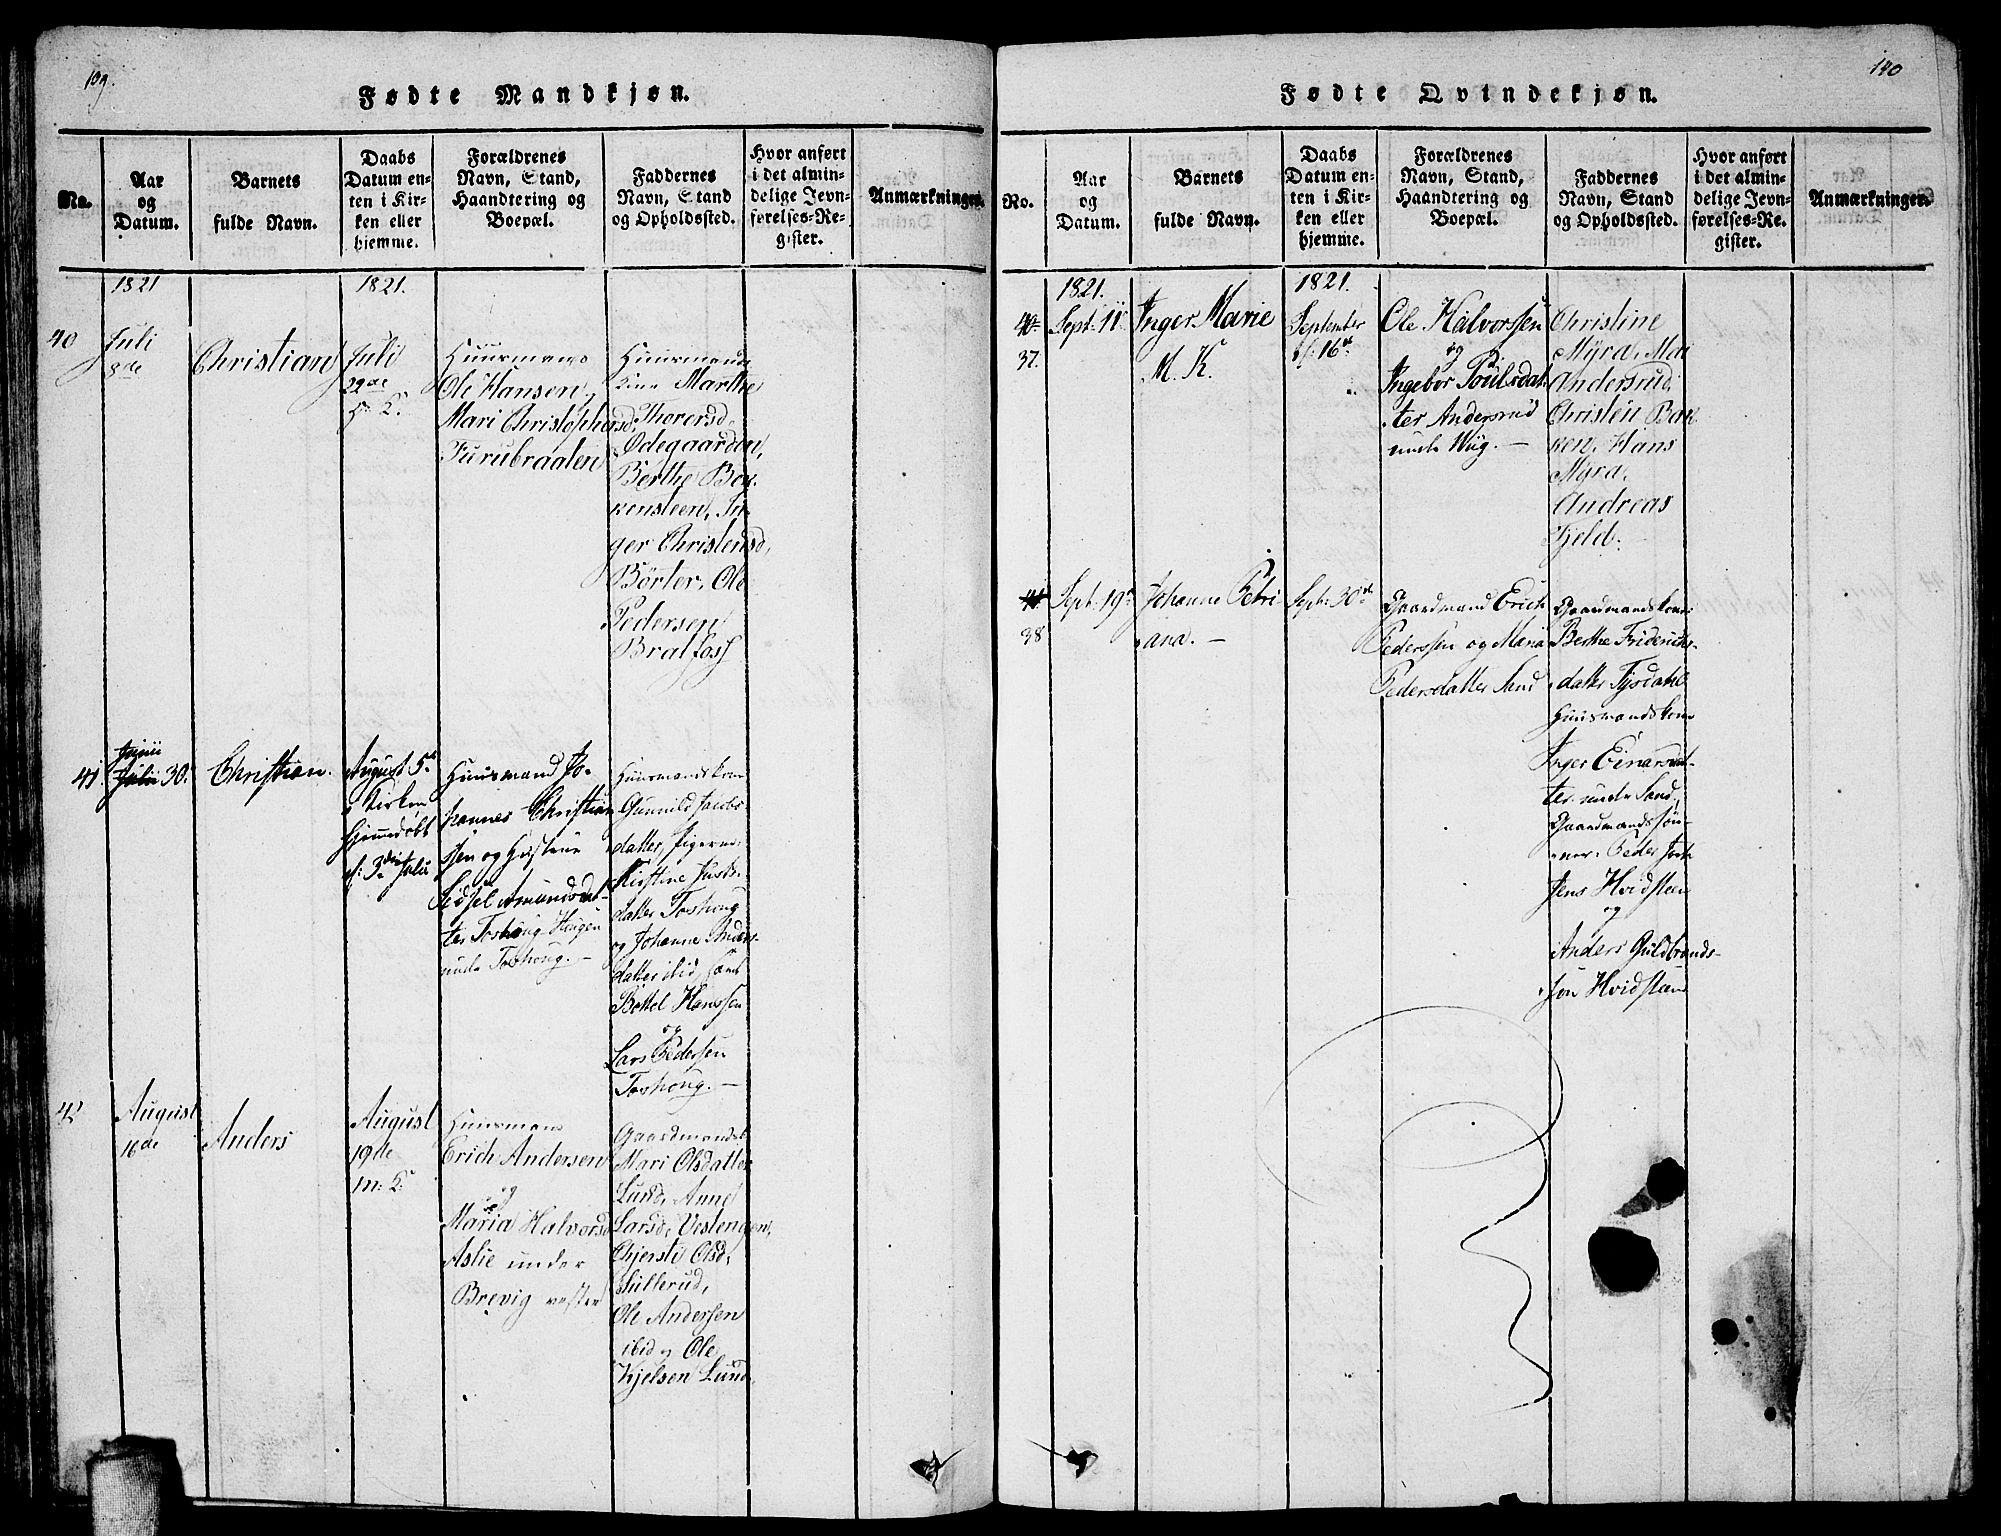 109.
Fødte Mandkjøn.
No.
Aar
og
Datum.
Barnets
fulde Navn.
Daabs
Datum en-
ten i Kir-
ken eller
hjemme.
Forældrenes
Navn, Stand,
Haandtering og
Boepæl.
Faddernes
Navn, Stand
og Opholdssted.
Hvor anført
i det almin-
delige Jevn-
førelses-Re-
gister.
Anmærkninger.
1821
1821.
40
Juli
8de
Christian
Juli
29de
H: K.
Huusmand
Ole Hansen,
Mari Christophersd.
Furubraaten
Huusmands
Marthe
Thorersd.
Ødegaarden,
Berthe Bor-
kensteen, In-
ger Christensd,
Börter, Ole
Pedersen
Bralfoss
41.
Junii
Julii 30.
Christian.
August 5te
i Kirken
Hjemmedøbt
d: 3die Julii
Huusmand Jo-
hannes Christian
ssen og Hustrue
Sidsel Amundsdat-
ter Toshoug-Haugen
under Toshoug. —
Huusmandskone
Gunnild Jacobs-
datter, Pigerne:
Kirstine
datter Toshoug
og Johanne Anders-
datter ibid, samt
Bottel Hanssen
og
Lars Pedersen
Toshoug. —
42
August
16de
Anders
August
19de
m: K.
Huusmand
Erich Andersen
og
Maria Halvorsd
Aslie under
Brevig vestre
Gaardmandsk.
Mari Olsdatter
Lund, Anne
Larsd. Vestengen,
Chjersti Olsd,
Sullerud,
Ole Andersen
ibid og Ole
Kjelsen Lund.
140
Fødte Qvindekjøn.
No.
Aar
og
Datum.
Barnets
fulde Navn.
Daabs
Datum en-
ten i Kir-
ken eller
hjemme.
Forældrenes
Navn, Stand,
Haandtering og
Boepæl.
Faddernes
Navn, Stand
og Opholdssted.
Hvor anført
i det almin-
delige Jevn-
førelses-Re-
gister.
Anmærkninger.
1821.
1821.
40
37.
Sept: 11
Inger Marie
M. K.
September
d: 16de
Ole Halvorssen
og
Ingebor Poulsdat
ter Andersrud
under Wiig. —
Christine
Myra, Mari
Andersrud
Christen Bak
ken, Hans
Myra,
Andreas
Kjeld.
41
38
Sept: 19de
Johanne Petri
ana. —
Sept: 30te
Gaardmand Erich
Pederssen og Maria
Pedersdatter Sand
Gaardmandskone
Berthe Friderichs-
datter Tysdahl
Huusmandskone
Inger Einarsdat-
ter under Sand,
Gaardmandssøn-
ner: Peder
Jens Hvidsteen
og
Anders Guldbrands-
søn Hvidsteen